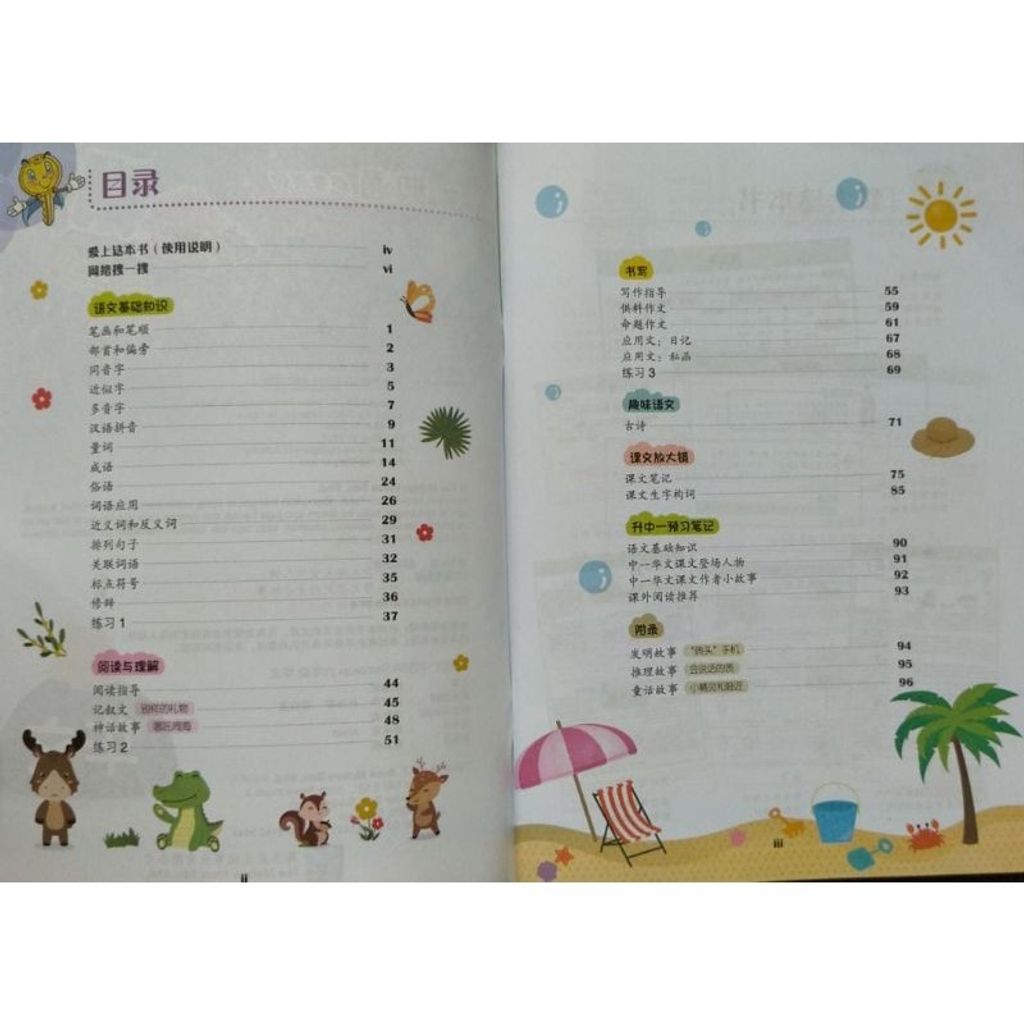 目录
爱上这本书（使用说明） iv
网络搜一搜 vi
语文基础知识
笔画和笔顺 1
部首和偏旁 2
同音字 3
近似字 5
多音字 7
汉语拼音 9
量词 11
成语 14
俗语 24
词语应用 26
近义词和反义词 29
排列句子 31
关联词语 32
标点符号 35
修辞 36
练习 1 37
阅读与理解
阅读指导 44
记叙文 别样的礼物 45
神话故事 哪吒闹海 48
练习 2 51
ii
书写
写作指导 55
供料作文 59
命题作文 61
应用文：日记 67
应用文：私函 68
练习 3 69
趣味语文
古诗 71
课文放大镜
课文笔记 75
课文生字构词 85
升中一预习笔记
语文基础知识 90
中一华文课文登场人物 91
中一华文课文作者小故事 92
课外阅读推荐 93
附录
发明故事 “砖头”手机 94
推理故事 会说话的表 95
童话故事 96
iii